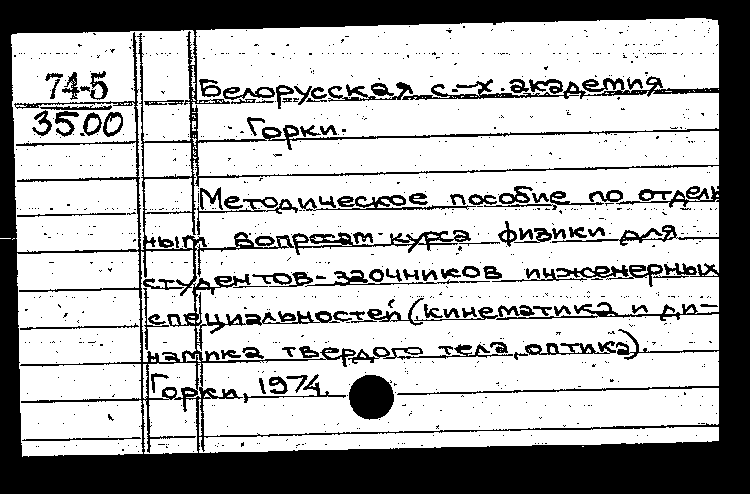 74-5
3500
Белорусская с.-х. академия
Горки.
Методическое пособие по отдель
ным вопросам курса физики для
студентов-заочников инженерных
специальностей (кинематика и ди-
намика твердого тела, оптика).
Горки, 1974.